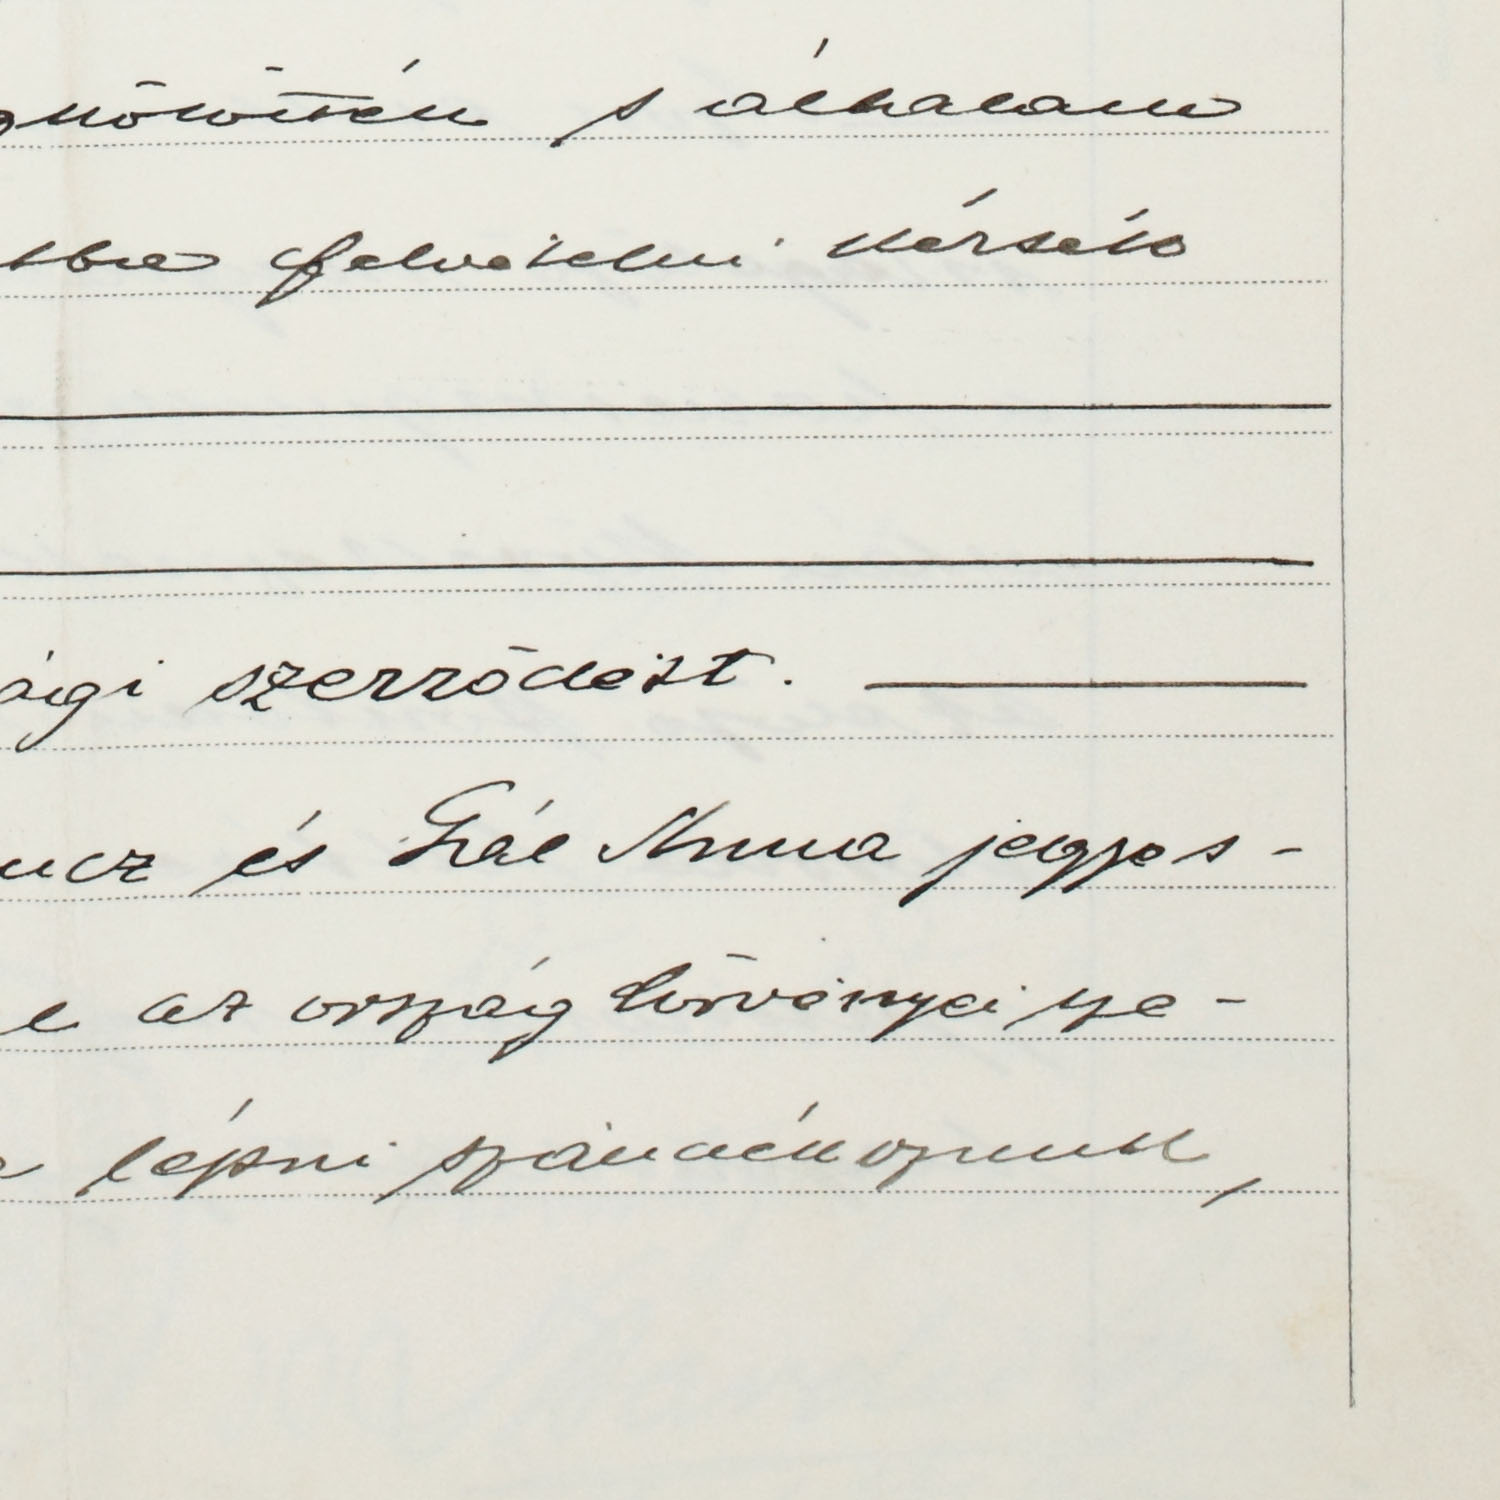 s általam
felvétetni kérték
sági szerződést.
ncz és Gál Anna jegyes-
e az ország törvényei sze-
e lépni szándékozunk,